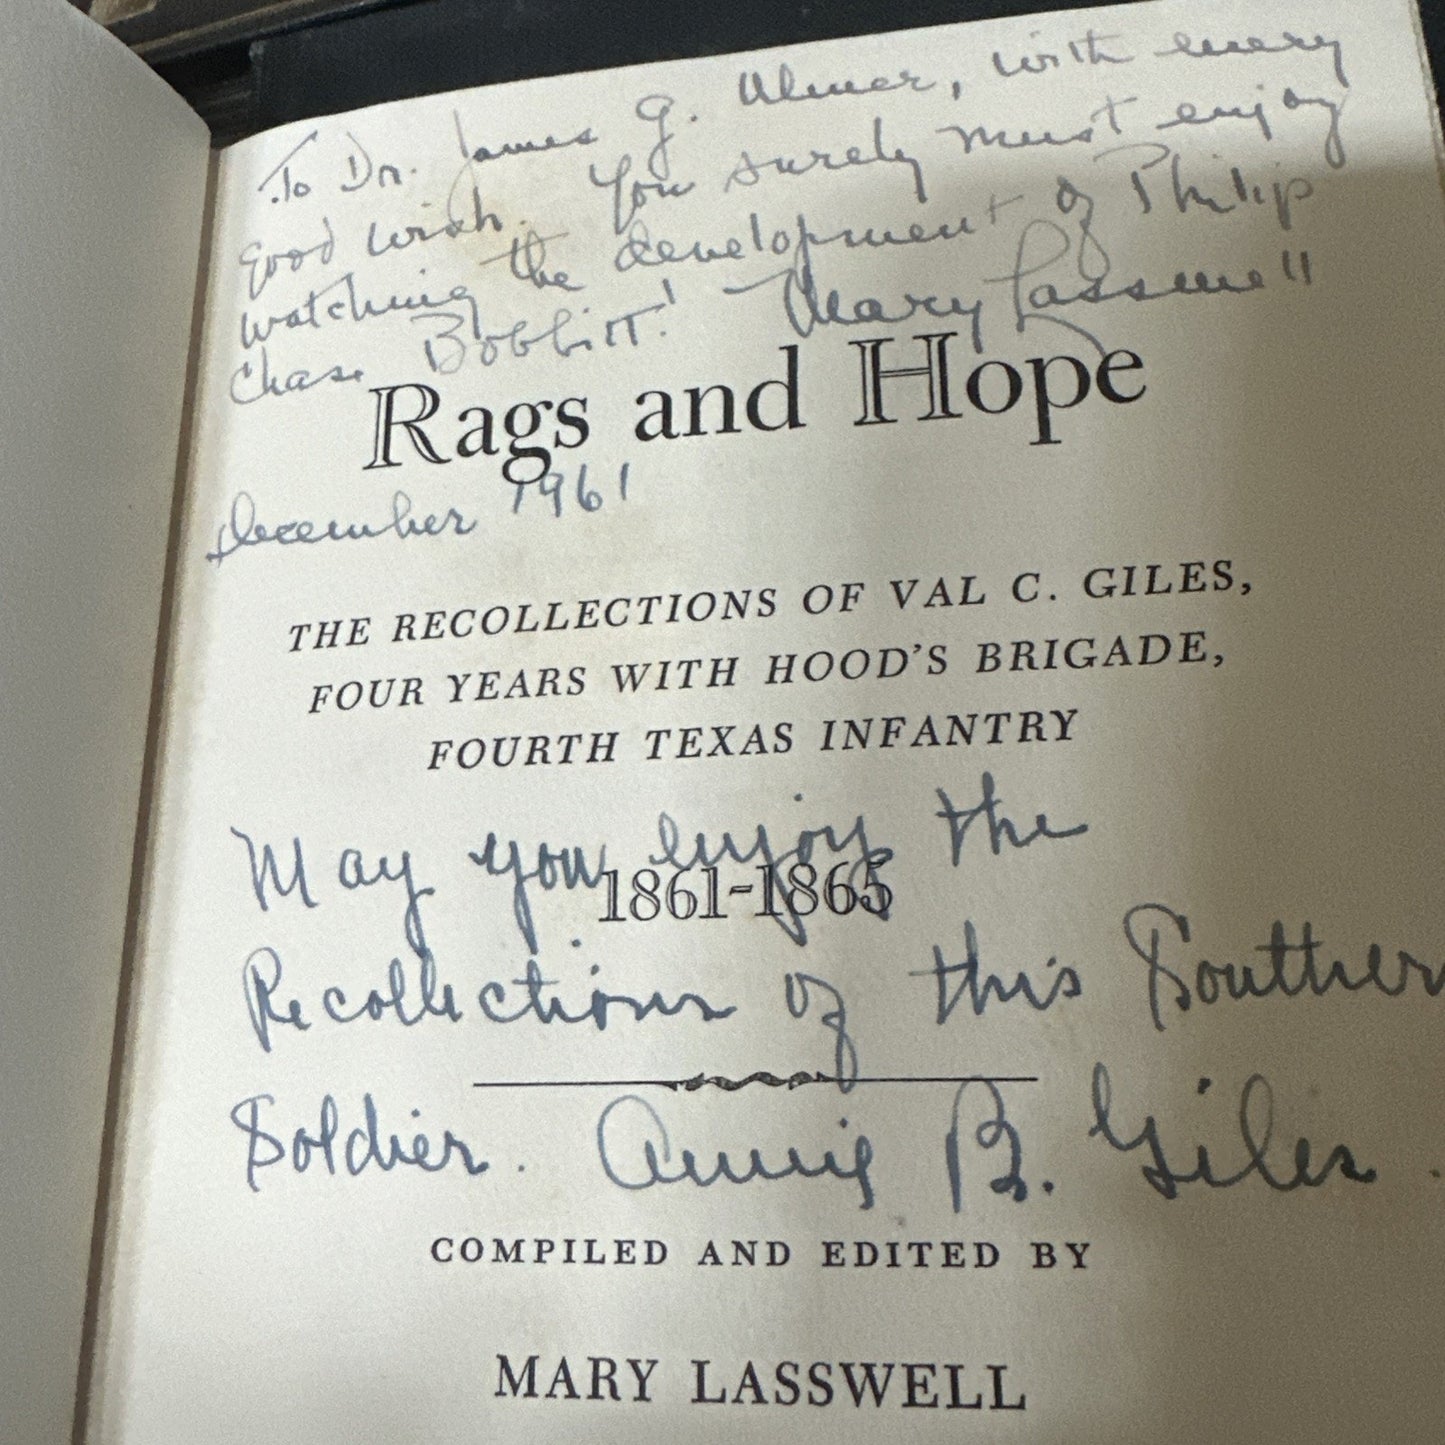 To Dr. James G. Ulmer, with every
good wish. You surely must enjoy
watching the development of Philip
Chase Bobbitt! - Mary Lasswell
Rags and Hope
December 1961
THE RECOLLECTIONS OF VAL C. GILES,
FOUR YEARS WITH HOOD'S BRIGADE,
FOURTH TEXAS INFANTRY
May you enjoy the
1861-1865
Recollections of this Southern
Soldier. Annie B. Giles.
COMPILED AND EDITED BY
MARY LASSWELL